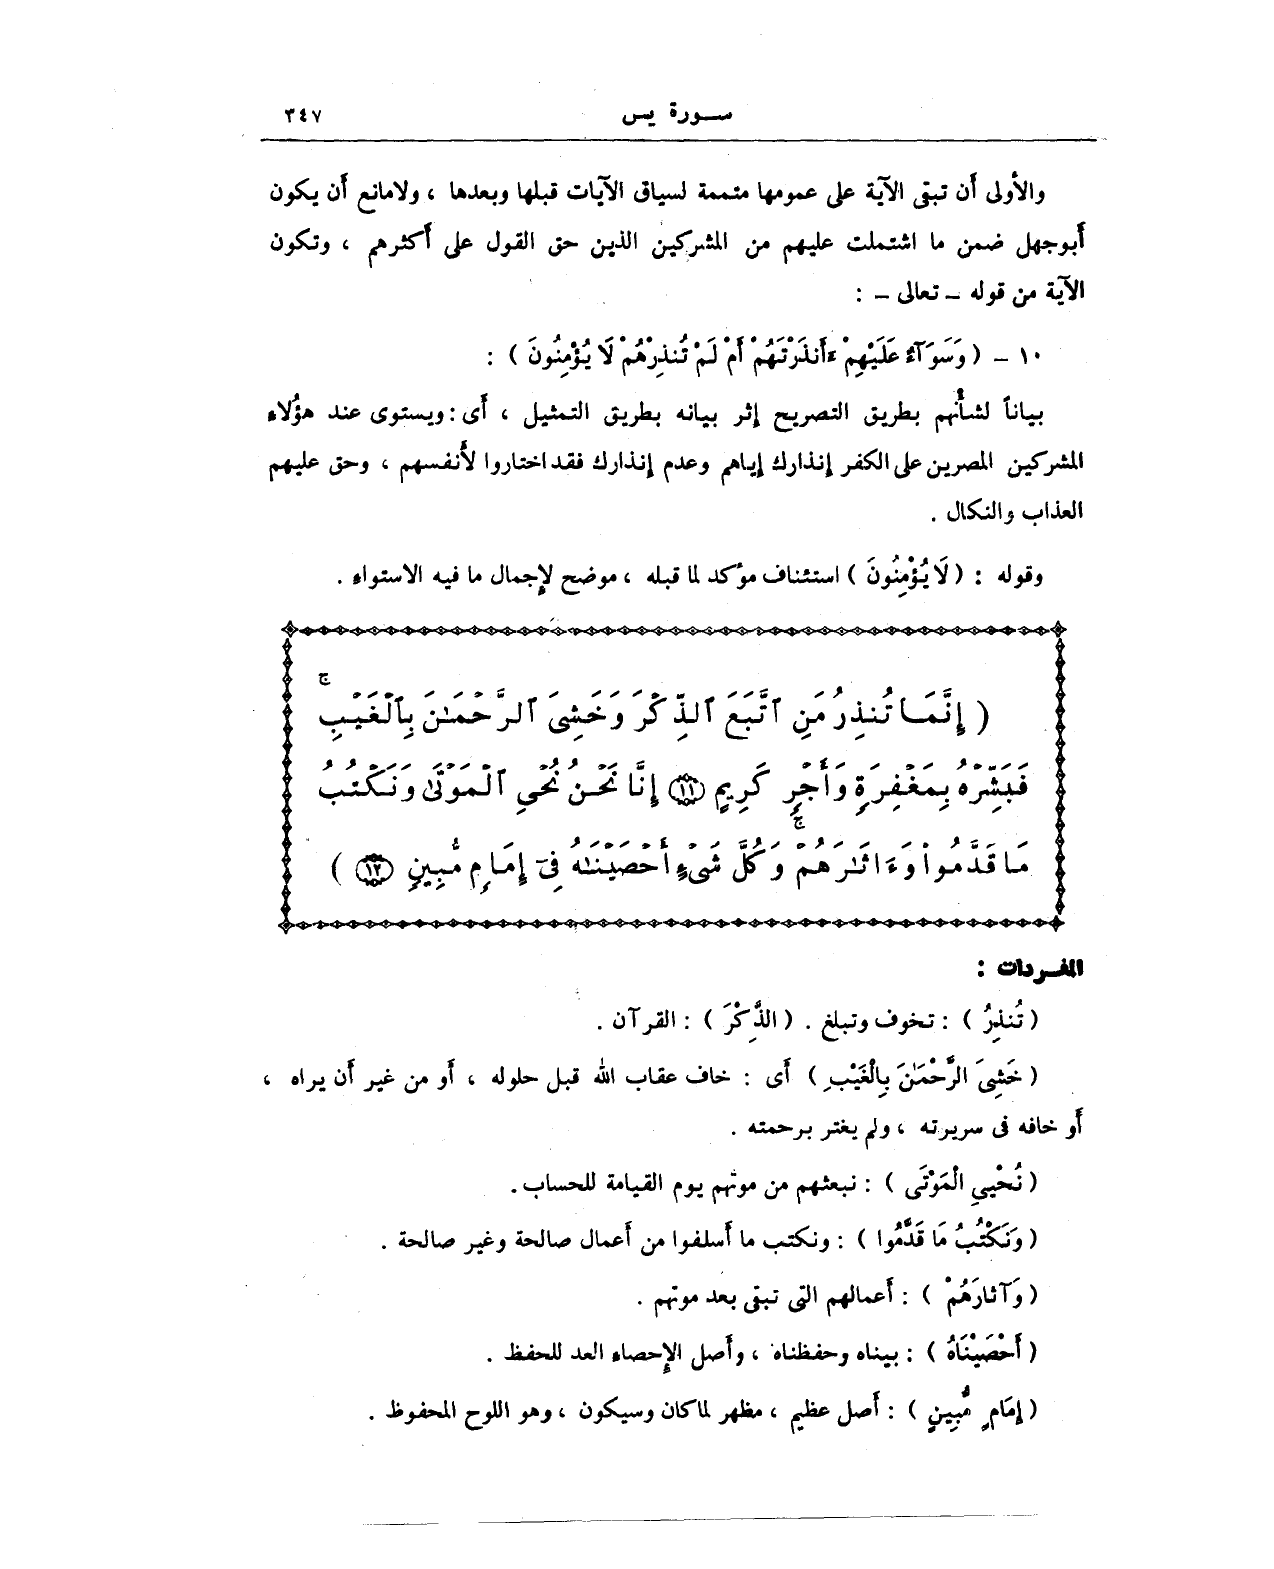 سورة يس ٣٤٧
والأولى أن تبقى الآية على عمومها متممة لسياق الآيات قبلها وبعدها ، ولامانع أن يكون
أبوجهل ضمن ما اشتملت عليهم من المشركين الذين حق القول على أكثرهم ، وتكون
الآية من قوله – تعالى – :
١٠ – ( وَسَوَآءٌ عَلَيْهِمْ ءَأَنذَرْتَهُمْ أَمْ لَمْ تُنذِرْهُمْ لَا يُؤْمِنُونَ ) :
بياناً لشأنهم بطريق التصريح إثر بيانه بطريق التمثيل ، أى : ويستوى عند هؤلاء
المشركين المصرين على الكفر إنذارك إياهم وعدم إنذارك فقد اختاروا لأنفسهم ، وحق عليهم
العذاب والنكال .
وقوله : ( لَا يُؤْمِنُونَ ) استئناف مؤكد لما قبله ، موضح لإجمال ما فيه الاستواء .
( إِنَّمَا تُنذِرُ مَنِ ٱتَّبَعَ ٱلذِّكْرَ وَخَشِىَ ٱلرَّحْمَـٰنَ بِٱلْغَيْبِ ۚ
فَبَشِّرْهُ بِمَغْفِرَةٍ وَأَجْرٍ كَرِيمٍ ١١ إِنَّا نَحْنُ نُحْىِ ٱلْمَوْتَىٰ وَنَكْتُبُ
مَا قَدَّمُوا۟ وَءَاثَـٰرَهُمْ ۚ وَكُلَّ شَىْءٍ أَحْصَيْنَـٰهُ فِىٓ إِمَامٍ مُّبِينٍ ١٢ )
المفردات :
( تُنذِرُ ) : تخوف وتبلغ . ( الذِّكْرَ ) : القرآن .
( خَشِىَ الرَّحْمَـٰنَ بِالْغَيْبِ ) أى : خاف عقاب الله قبل حلوله ، أو من غير أن يراه ،
أو خافه فى سريرته ، ولم يغتر برحمته .
( نُحْيِي الْمَوْتَى ) : نبعثهم من موتهم يوم القيامة للحساب .
( وَنَكْتُبُ مَا قَدَّمُوا ) : ونكتب ما أسلفوا من أعمال صالحة وغير صالحة .
( وَآثَارَهُمْ ) : أعمالهم التى تبقى بعد موتهم .
( أَحْصَيْنَاهُ ) : بيناه وحفظناه ، وأصل الإحصاء العد للحفظ .
( إِمَامٍ مُّبِينٍ ) : أصل عظيم ، مظهر لماكان وسيكون ، وهو اللوح المحفوظ .